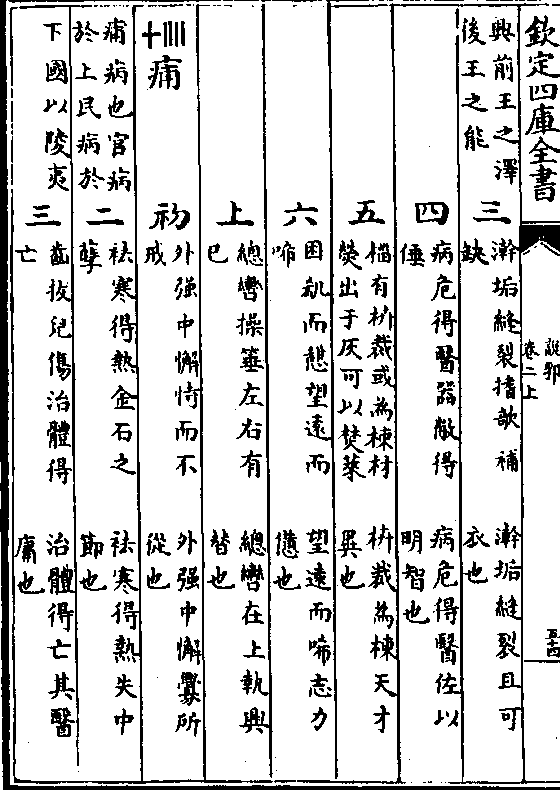 欽定四庫全書
卷二上
興前王之澤
後王之能
三
澣垢縫裂揩歆補
缺
澣垢縫裂且可
衣也
四
病危得醫器敝得
倕
病危得醫佐以
明智也
五
橊有枿裁或為棟材
熒出于灰可以焚萊
枿裁為棟天才
異也
六
困飢而憩望遠而
啼
望遠而啼志力
憊也
上
總轡操箠左右有
已
總轡在上執輿
替也
痡
痡病也官病
於上民病於
下國以陵夷
初
外强中懈恃而不
戒
外强中懈釁所
從也
二
袪寒得熱金石之
孽
袪寒得熱失中
節也
三
齒拔兒傷治體得
亡
治體得亡其醫
庸也